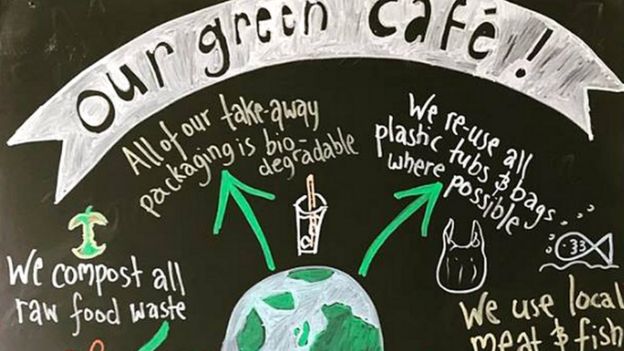 our green café!
All of our take-away
packaging is bio-
degradable
We re-use all
plastic tubs & bags
where possible
We compost all
raw food waste
We use local
meat & fish